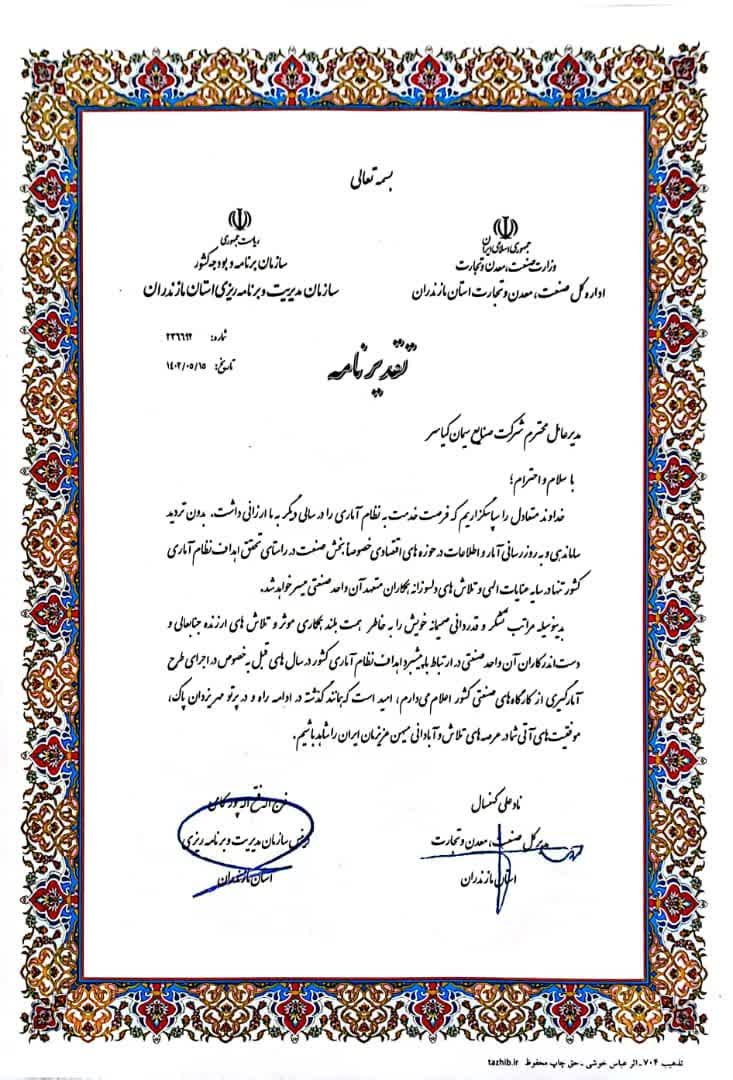 بسمه تعالی
جمهوری اسلامی ایران
وزارت صنعت، معدن و تجارت
اداره کل صنعت، معدن و تجارت استان مازندران
ریاست جمهوری
سازمان برنامه و بودجه کشور
سازمان مدیریت و برنامه ریزی استان مازندران
شماره: ۲۳۶۶۹۲
تاریخ: ۱۴۰۲/۰۵/۱۵
تقدیرنامه
مدیرعامل محترم شرکت صنایع سیمان کیاسر
با سلام و احترام؛
خداوند متعادل را سپاسگزاریم که فرصت خدمت به نظام آماری را در سالی دیگر به ما ارزانی داشت. بدون تردید
ساماندهی و به روز رسانی آمار و اطلاعات در حوزه های اقتصادی خصوصاً بخش صنعت در راستای تحقق اهداف نظام آماری
کشور تنها در سایه عنایات الهی و تلاش های دلسوزانه همکاران متعهد آن واحد صنعتی میسر خواهد شد.
بدینوسیله مراتب تشکر و قدردانی صمیمانه خویش را به خاطر همت بلند همکاری موثر و تلاش های ارزنده جنابعالی و
دست اندرکاران آن واحد صنعتی در ارتباط با پیشبرد اهداف نظام آماری کشور در سال های قبل به خصوص در اجرای طرح
آمارگیری از کارگاه های صنعتی کشور اعلام می دارم، امید است که همانند گذشته در ادامه راه و در پرتو مهر یزدان پاک،
موفقیت های آتی شما در عرصه های تلاش و آبادانی میهن عزیزمان ایران را شاهد باشیم.
نادعلی کنسال
مدیر کل صنعت، معدن و تجارت
استان مازندران
فرج اله فتح اله پور
رئیس سازمان مدیریت و برنامه ریزی
استان مازندران
تذهیب ۷۰۴ - اثر عباس خوشی - حق چاپ محفوظ tazhib.ir